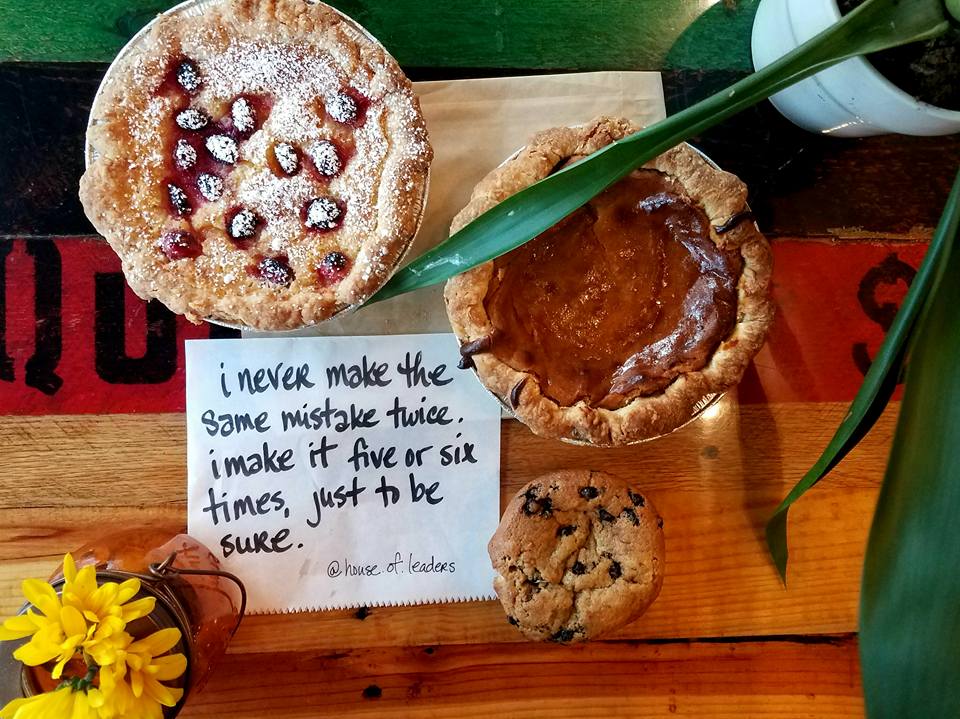 i never make the
same mistake twice.
i make it five or six
times, just to be
sure.
@house.of.leaders